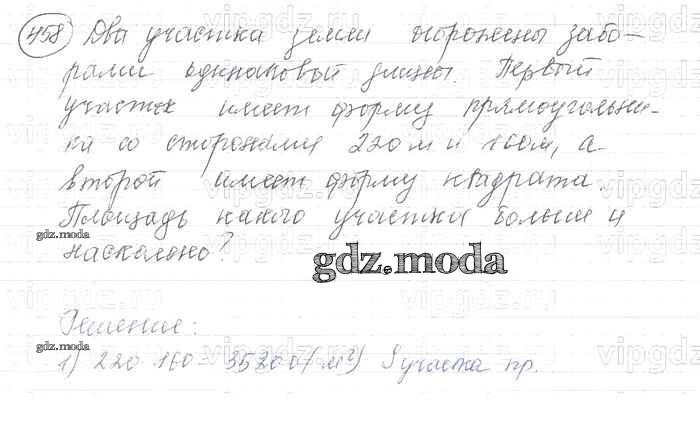 458 Два участка земли огорожены забо-
рами одинаковой длины. Первый
участок имеет форму прямоугольни-
ка со сторонами 220 м и 160 м, а
второй имеет форму квадрата.
Площадь какого участка больше и
gdz.moda
насколько?
gdz.moda
Решение:
gdz.moda
1) 220 · 160 = 35200 (м²) S участка пр.